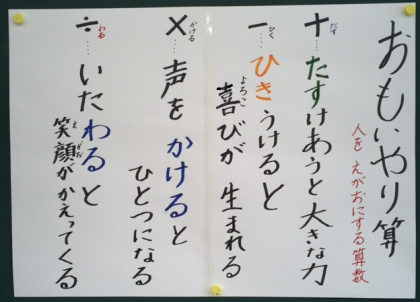 おもいやり算
人を えがおにする算数
＋…たすけあうと大きな力
たす
－…ひきうけると
ひく
喜びが 生まれる
よろこ
×…声を かけると
かける
ひとつになる
÷…いたわると
わる
笑顔がかえってくる
えがお